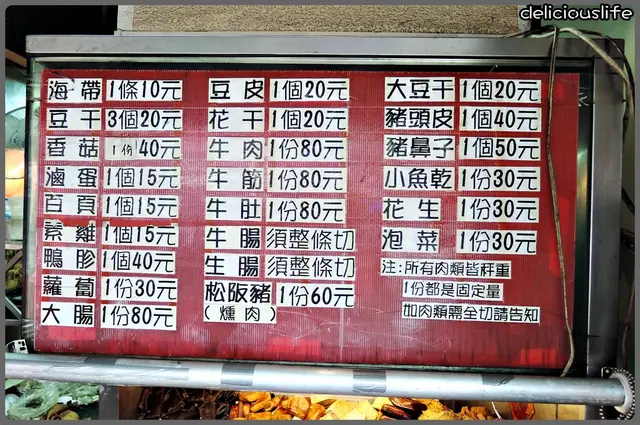 deliciouslife
海帶 1條10元
豆干 3個20元
香菇 1份40元
滷蛋 1個15元
百頁 1個15元
素雞 1個15元
鴨胗 1個40元
蘿蔔 1份30元
大腸 1份80元
豆皮 1個20元
花干 1個20元
牛肉 1份80元
牛筋 1份80元
牛肚 1份80元
牛腸 須整條切
生腸 須整條切
松阪豬 1份60元
(燻肉)
大豆干 1個20元
豬頭皮 1個40元
豬鼻子 1個50元
小魚乾 1份30元
花生 1份30元
泡菜 1份30元
注:所有肉類皆秤重
1份都是固定量
如肉類需全切請告知